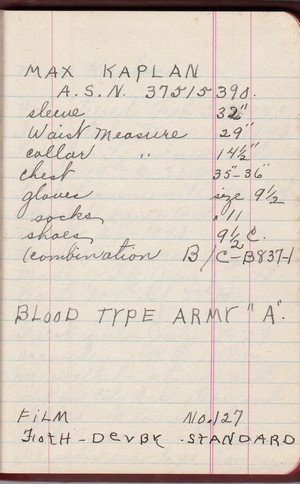 MAX KAPLAN
A.S.N. 37515390.
sleeve 32"
Waist Measure 29"
collar " 14½"
chest 35"-36"
gloves size 9½
socks " 11
shoes 9½ C.
Combination B/C-B837-1
BLOOD TYPE ARMY "A".
FILM No. 127